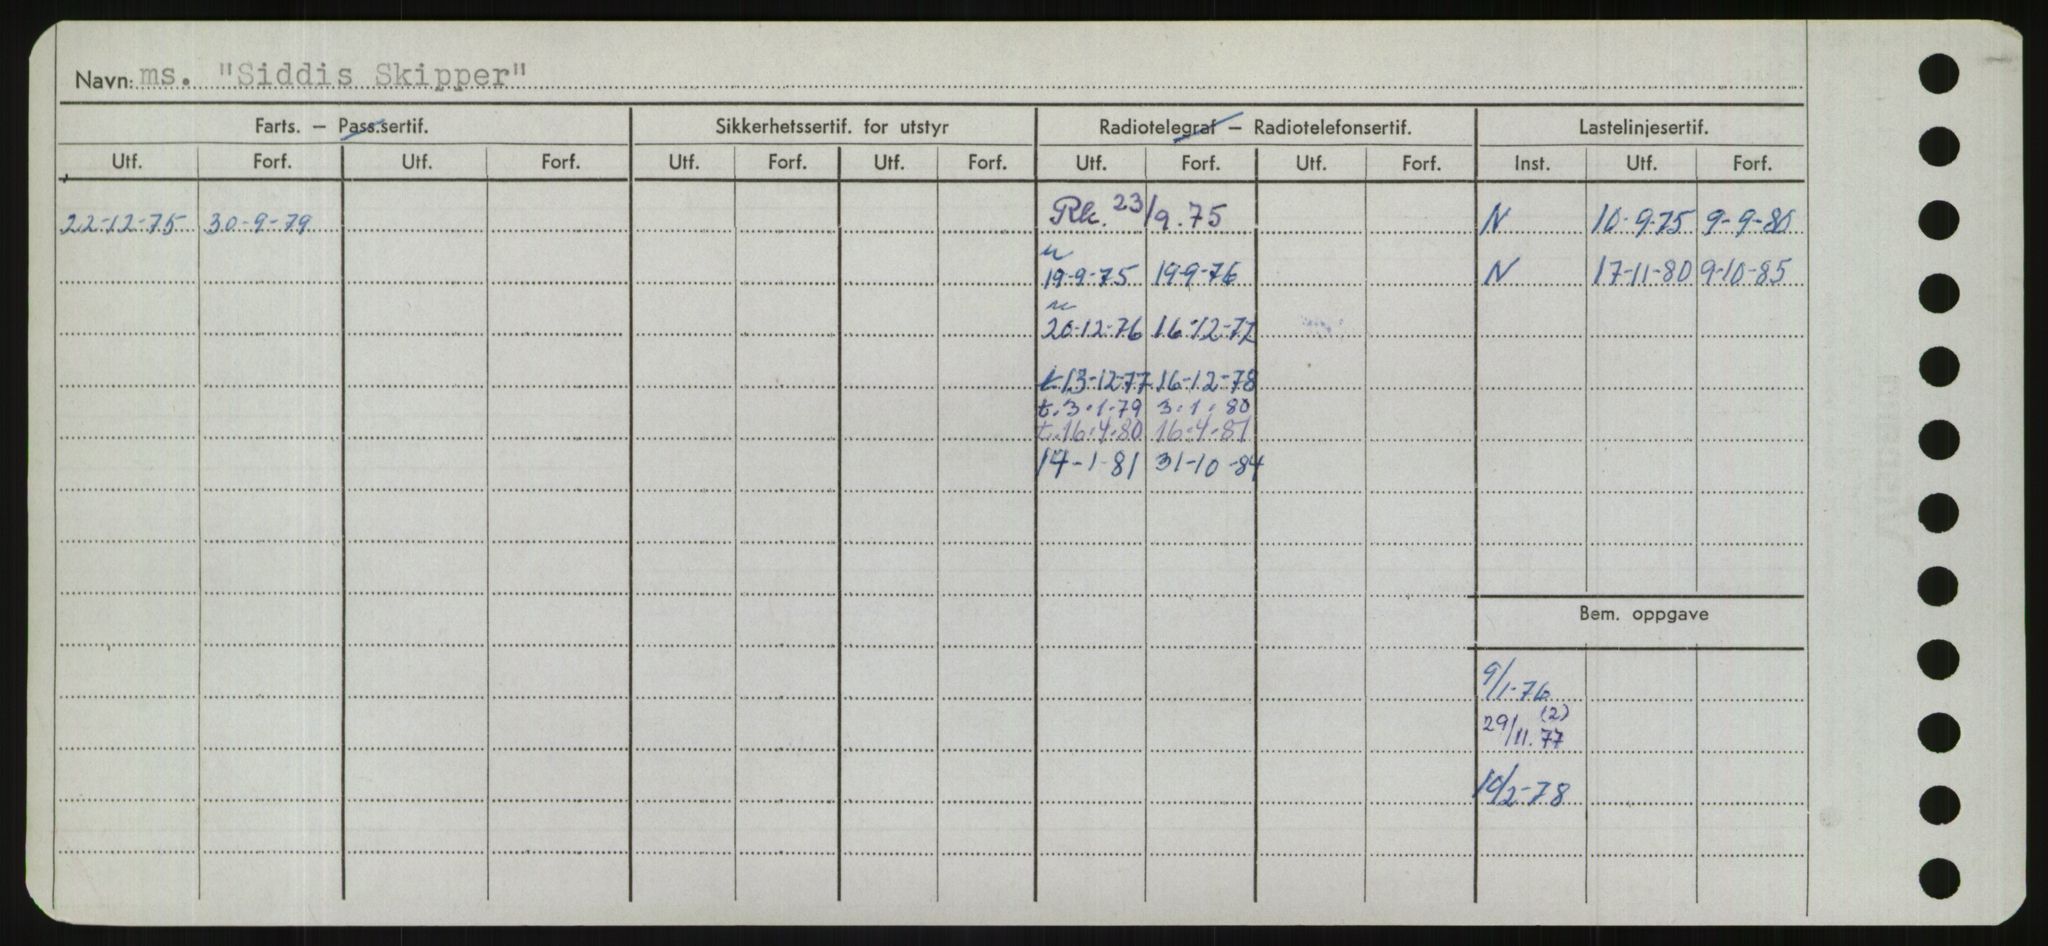 Navn: ms. "Siddis Skipper"
Farts. – Pass.sertif. Sikkerhetssertif. for utstyr Radiotelegraf – Radiotelefonsertif. Lastelinjesertif.
Utf. Forf. Utf. Forf. Utf. Forf. Utf. Forf. Utf. Forf. Utf. Forf. Inst. Utf. Forf.
22-12-75 30-9-79 Rk. 23/9.75 N 10-9-75 9-9-80
n
19-9-75 19-9-76 N 17-11-80 9-10-85
n
20-12-76 16-12-77
t.13-12-77 16-12-78
t.3.1.79 3.1.80
t.16.4.80 16.4.81
14-1-81 31-10-84
Bem. oppgave
9/1-76
29/11.77 (2)
10/2-78